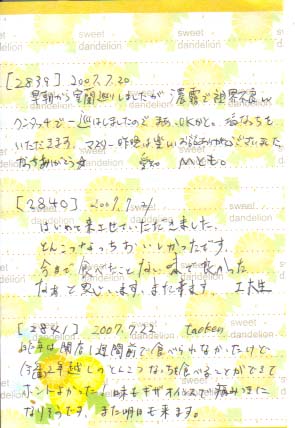 sweet dandelion
[2839] 2007.7.20
早朝から室蘭巡りしましたが 濃霧で視界不良……
ワンタッチで一巡はしましたので まあ、OKかと。
いただきます。マスター 昨晩は
なっちありがとう Mとも。
[2840] 2007.7.21
はじめて来させていただきました。
とんこつなっちおいしかったです。
今まで食べたことない味で良かった
なあと思います。また来ます。 工大生
[2841] 2007.7.22 tacken
昨年は開店1週間前で食べられなかったけど、
今回2年越しのとんこつなっちを食べることができて
ホントよかった!味もギザオイシスで病みつきに
なりそうです。また明日も来ます。
sweet dandelion